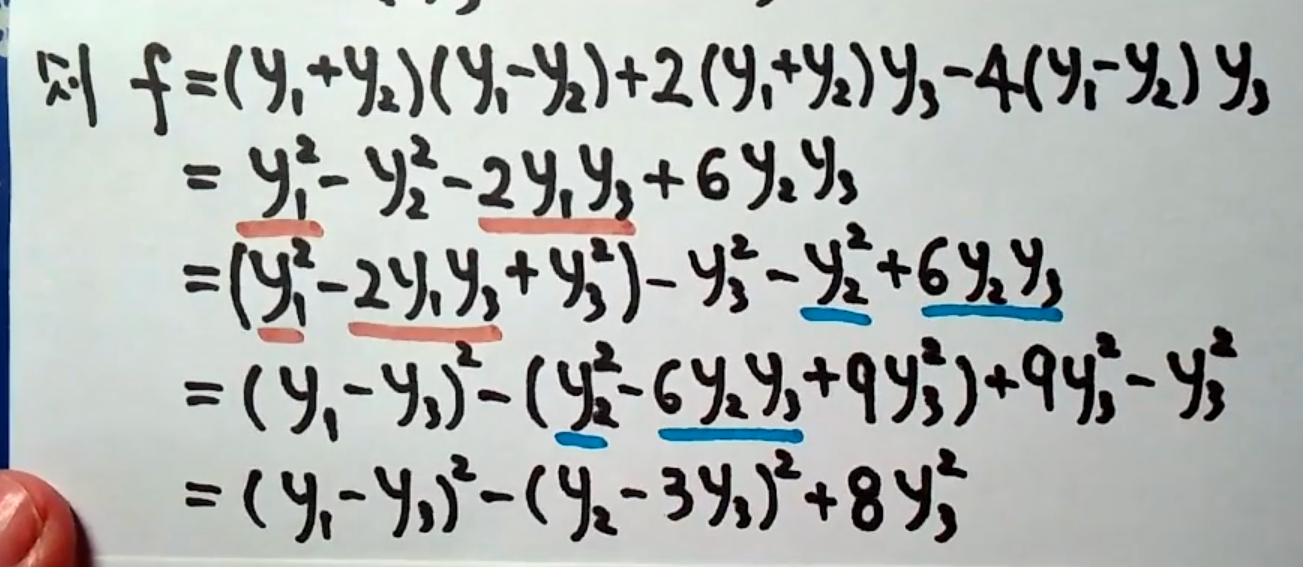 则 f=(y₁+y₂)(y₁-y₂)+2(y₁+y₂)y₃-4(y₁-y₂)y₃
= y₁²-y₂²-2y₁y₃+6y₂y₃
=(y₁²-2y₁y₃+y₃²)-y₃²-y₂²+6y₂y₃
=(y₁-y₃)²-(y₂²-6y₂y₃+9y₃²)+9y₃²-y₃²
=(y₁-y₃)²-(y₂-3y₃)²+8y₃²